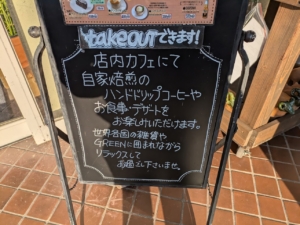 takeoutできます!
店内カフェにて
自家焙煎の
ハンドドリップコーヒーや
お食事・デザートを
お楽しみいただけます。
世界各国の雑貨や
GREENに囲まれながら
リラックスして
お過ごし下さいませ。